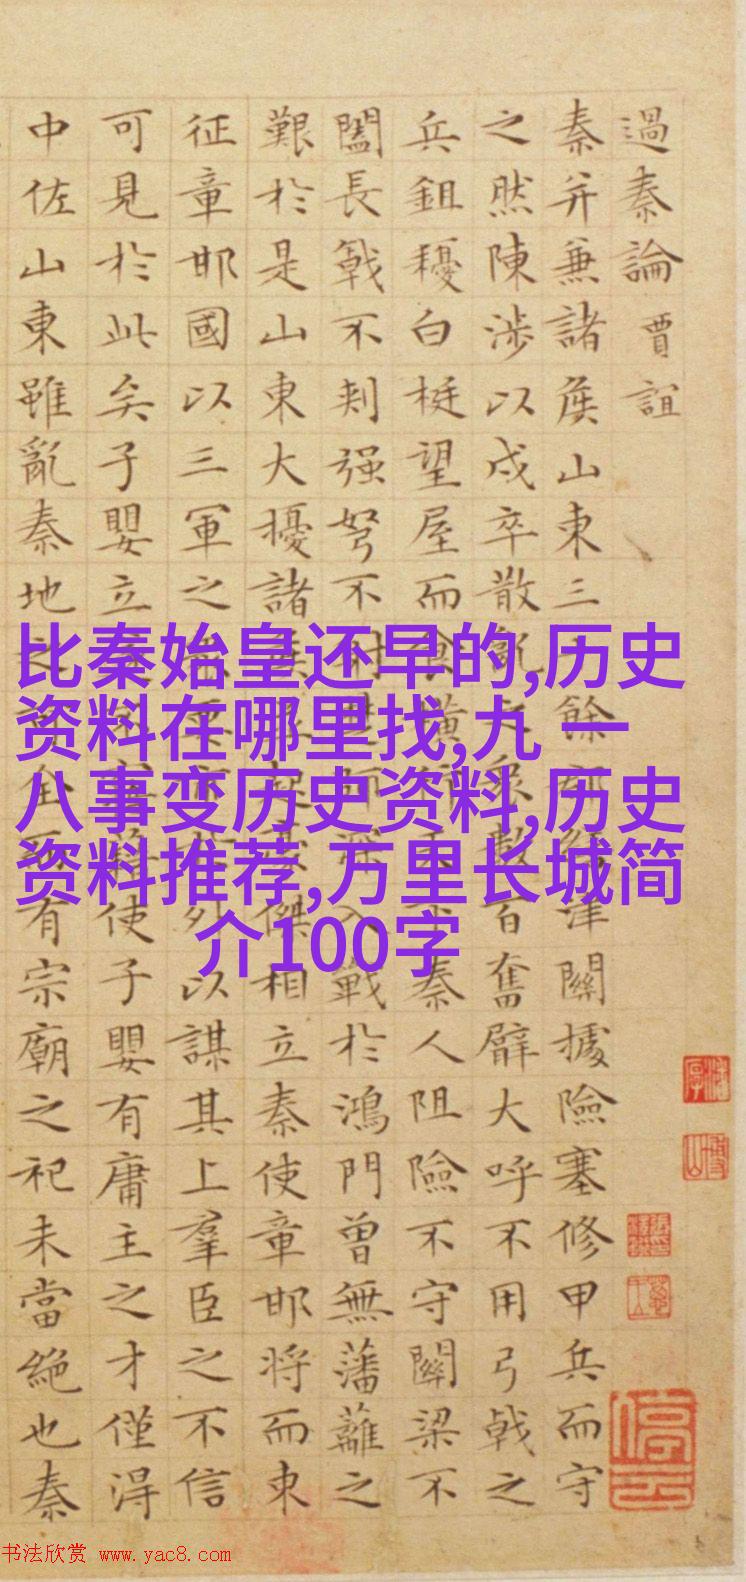 過秦論 賈誼
秦并兼諸侯山東三餘津關據險塞修甲兵而守
之然陳涉以戍卒散亂衆數百奮臂大呼不用弓戟之
兵鉏耰白梃望屋而食橫秦人阻險不守關梁不
闔長戟不刺强弩不射師深入戰於鴻門曾無藩籬之
艱於是山東大擾諸侯起豪傑相立秦使章邯將而東
征章邯國以三軍之外以謀其上羣臣之不信
可見於此矣子嬰立藉使子嬰有庸主之才僅得
中佐山東雖亂秦地之全有宗廟之祀未當絶也秦
比秦始皇还早的,历史
资料在哪里找,九 一
八事变历史资料,历史
资料推荐,万里长城简
介100字
书法欣赏 www.yac8.com